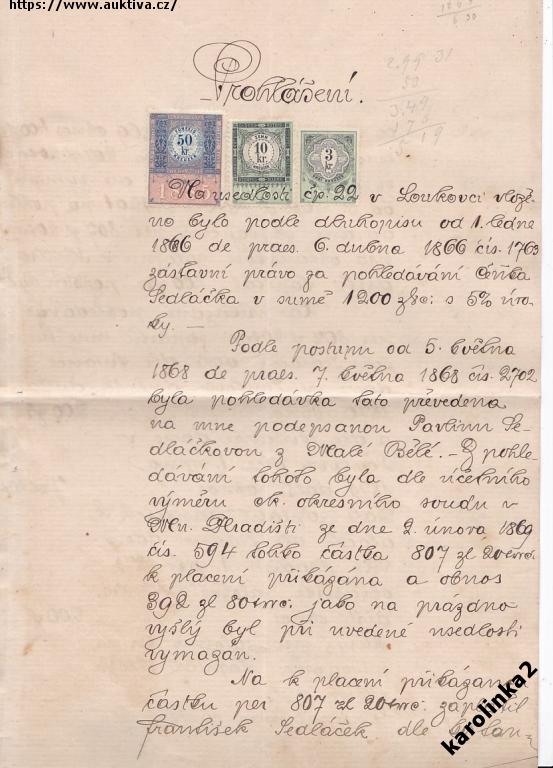 https://www.auktiva.cz/
Prohlášení.
2.99 31
50
50 kr
10 kr
3 kr
Na usedlosti čp. 22 v Loukovci vlože-
no bylo podle dluhopisu od 1. ledna
1866 de praes. 6. dubna 1866 čís. 1763
zástavní právo za pohledávání Čeňka
Sedláčka v sumě 1200 zl s 5% úro-
ky. —
Podle postupu od 5. května
1868 de praes. 7. května 1868 čís. 2702
byla pohledávka tato převedena
na mne podepsanou Pavlinu Se-
dláčkovou z Malé Bělé. — Z pohle-
dávání tohoto byla dle účetního
výměru ck. okresního soudu v
Mn. Hradišti ze dne 2. února 1869
čís. 594 tohto částka 807 zl 20
k placení přikázána a obnos
392 zl 80 jako na prázdno
vyšlý byl při uvedené usedlosti
vymazán.
Na k placení přikázanou
částku per 807 zl 20 zaplatil
František Sedláček dle
karolinka2